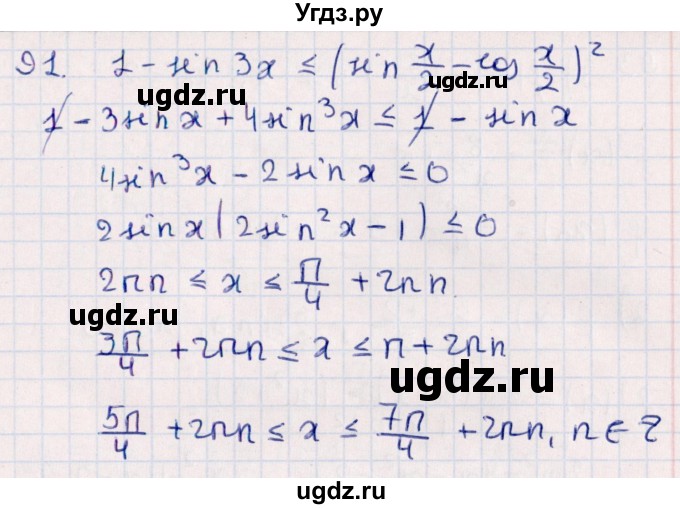 Угдз.ру
91. 1 - sin 3x ≤ (sin x/2 - cos x/2)²
ugdz.ru
ugdz.ru
1 - 3sin x + 4sin³x ≤ 1 - sin x
4sin³x - 2sin x ≤ 0
2sin x(2sin²x - 1) ≤ 0
2πn ≤ x ≤ π/4 + 2πn
ugdz.ru
3π/4 + 2πn ≤ x ≤ π + 2πn
ugdz.ru
5π/4 + 2πn ≤ x ≤ 7π/4 + 2πn, n ∈ Z
ugdz.ru